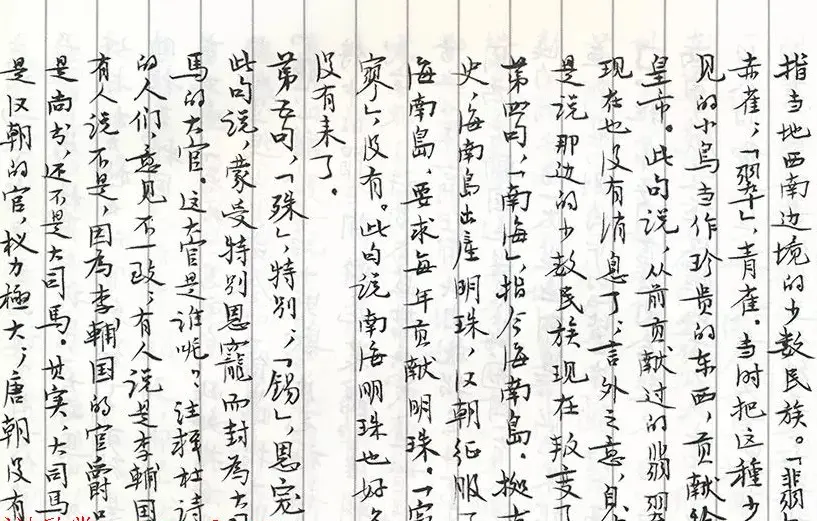 指当地西南边境的少数民族。「翡
赤雀,「翠」,青雀。当时把这種少
见的小鸟当作珍贵的东西,贡献给
皇帝。此句说,从前贡献过的翡翠
现在也没有消息了,言外之意,自
是说那边的少数民族现在叛变了
第四句,「南海」,指今海南島。据古
史,海南島出產明珠,汉朝征服了
海南島,要求每年贡献明珠。「寂
寥」,没有。此句说南海明珠也好久
没有来了。
第五句,「殊」,特别,「锡」,恩宠
此句说,蒙受特别恩寵而封為大司
馬的大官。这大官是谁呢?注释杜诗
的人们,意见不一致,有人说是李輔国
有人说不是,因為李輔国的官爵只
是尚书,还不是大司馬。其实,大司馬
是汉朝的官,权力極大,唐朝没有